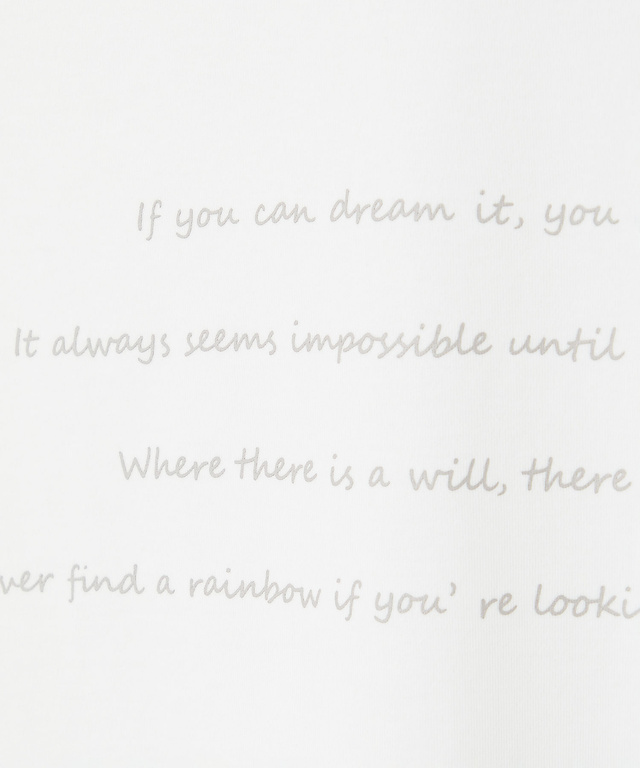 If you can dream it, you
It always seems impossible until
Where there is a will, there
ver find a rainbow if you' re looki